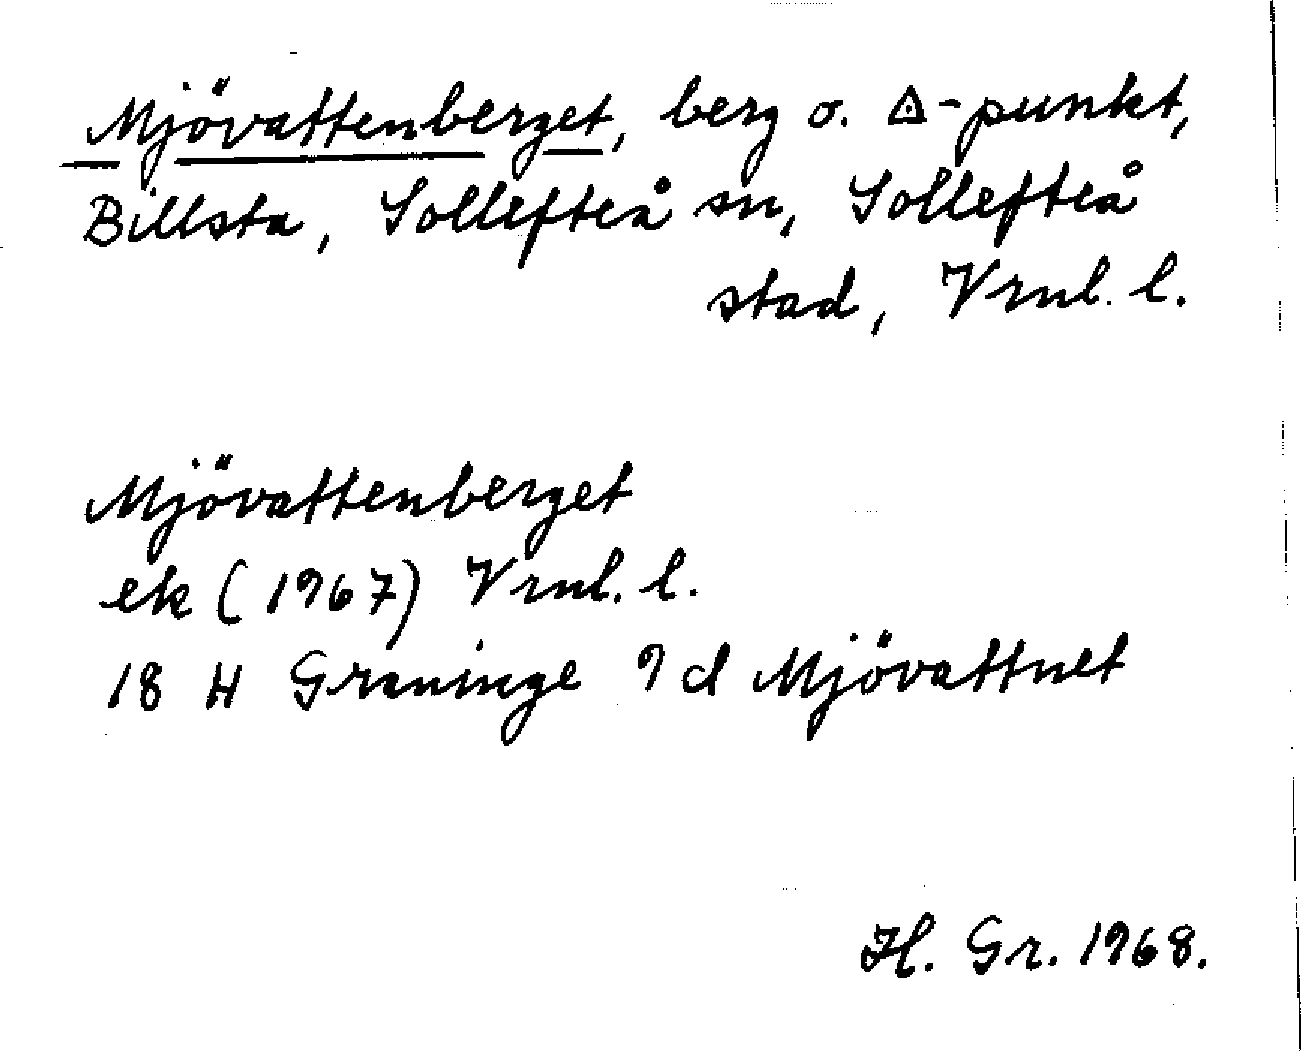 Mjövattenberget, berg o. ◬-punkt,
Billsta, Sollefteå sn, Sollefteå
stad, Vrnl. l.
Mjövattenberget
ek (1967) Vrnl. l.
18 H Graninge 9 d Mjövattnet
H. Gr. 1968.